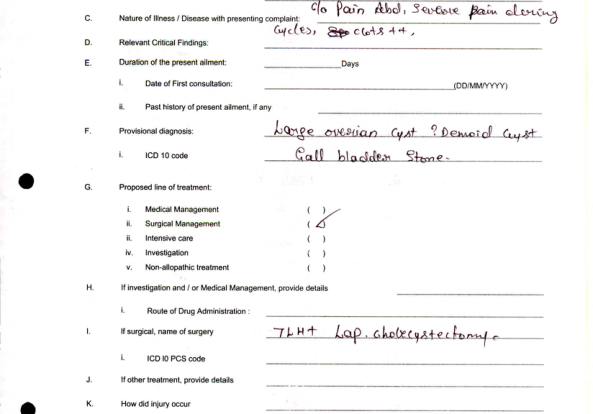 C. Nature of Illness / Disease with presenting complaint: c/o Pain Abd, Severe pain during
cycles, clots ++,
D. Relevant Critical Findings:
E. Duration of the present ailment: Days
i. Date of First consultation: (DD/MM/YYYY)
ii. Past history of present ailment, if any
F. Provisional diagnosis: Large overian Cyst ? Demoid Cyst
i. ICD 10 code Gall bladder Stone.
G. Proposed line of treatment:
i. Medical Management ( )
ii. Surgical Management ( )
ii. Intensive care ( )
iv. Investigation ( )
v. Non-allopathic treatment ( )
H. If investigation and / or Medical Management, provide details
i. Route of Drug Administration :
I. If surgical, name of surgery TLH+ Lap. cholecystectomy.
i. ICD I0 PCS code
J. If other treatment, provide details
K. How did injury occur